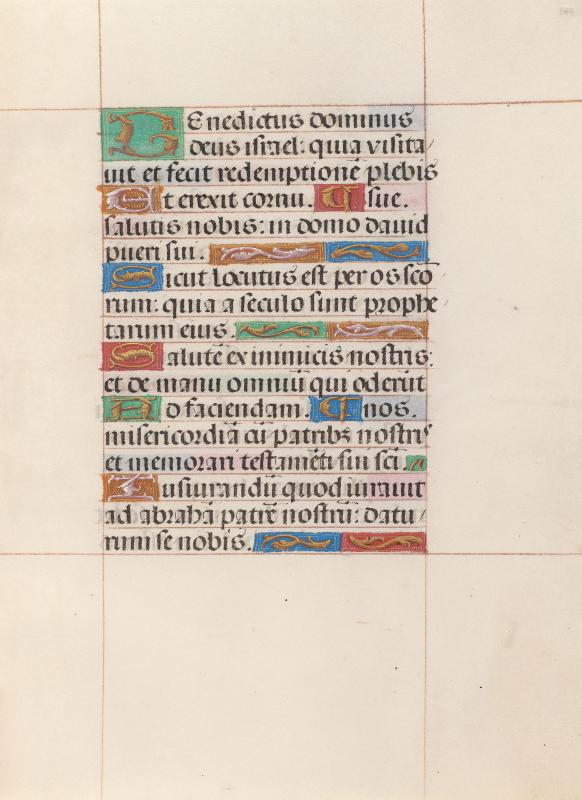 Benedictus dominus
deus israel: quia visita/
uit et fecit redemptionē plebis
Et erexit cornu. ¶ sue.
salutis nobis: in domo dauid
pueri sui.
Sicut locutus est per os scō
rum: quia a seculo sunt prophe/
tarum eius.
Salutē ex inimicis nostris:
et de manu omniū qui oderūt
Ad faciendam. ¶ nos.
misericordiā cū patribꝫ nostris
et memorari testamēti sui scī.
Iusiurandū quod iurauit
ad abrahā patrē nostrū: datu/
rum se nobis.